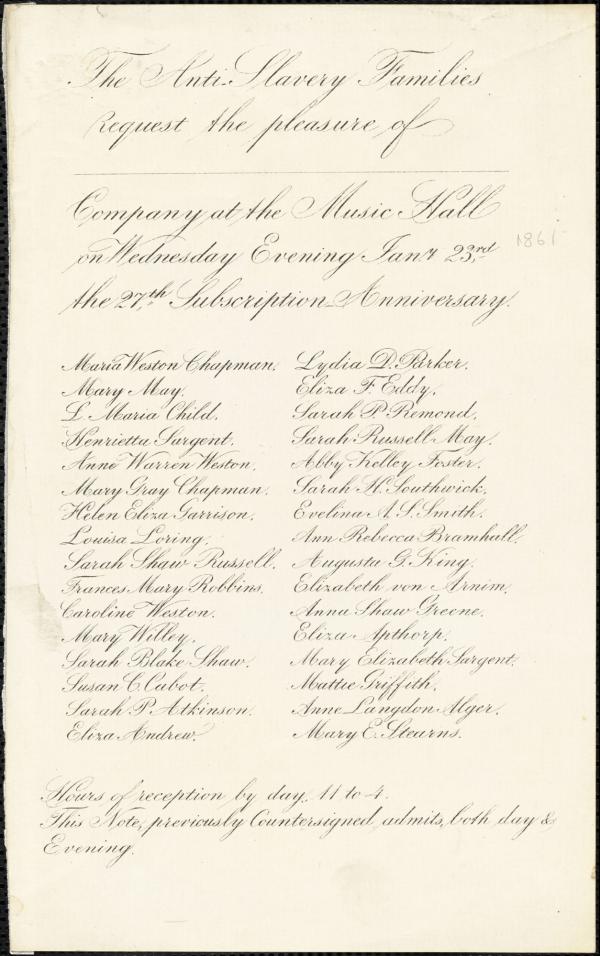 The Anti-Slavery Families
request the pleasure of
Company at the Music Hall
on Wednesday Evening Jany 23rd
1861
the 27th Subscription Anniversary.
Maria Weston Chapman.
Mary May.
L. Maria Child.
Henrietta Sargent.
Anne Warren Weston.
Mary Gray Chapman.
Helen Eliza Garrison.
Louisa Loring.
Sarah Shaw Russell.
Frances Mary Robbins.
Caroline Weston.
Mary Willey.
Sarah Blake Shaw.
Susan C. Cabot.
Sarah P. Atkinson.
Eliza Andrew.
Lydia D. Parker.
Eliza F. Eddy.
Sarah P. Remond.
Sarah Russell May.
Abby Kelley Foster.
Sarah H. Southwick.
Evelina A. S. Smith.
Ann Rebecca Bramhall.
Augusta G. King.
Elizabeth von Arnim.
Anna Shaw Greene.
Eliza Apthorp.
Mary Elizabeth Sargent.
Mattie Griffith.
Anne Langdon Alger.
Mary E. Stearns.
Hours of reception by day, 11 to 4.
This Note, previously Countersigned, admits, both day &
Evening.